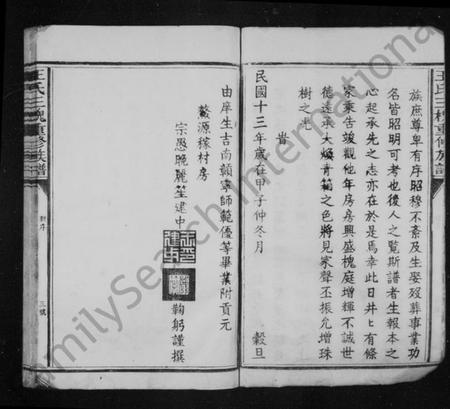 王氏三槐重修族譜
族庶尊卑有序昭穆不紊及生娶歿葬事業功
名皆昭明可考也後人之覧斯譜者生報本之
心起承先之志亦在於是焉幸此日井〻有條
家乗告竣觀他年房房興盛槐庭增輝不誠世
德遠承大煥青箱之色將見家聲丕振允增珠
樹之光
旹
民國十三年歲在甲子仲冬月 穀旦
由庠生吉南贛寧師範優等畢業附貢元
源稼村房
宗愚晚麗笙建中 鞠躬謹撰
王氏三槐重修族譜
序
三號
FamilySearch International